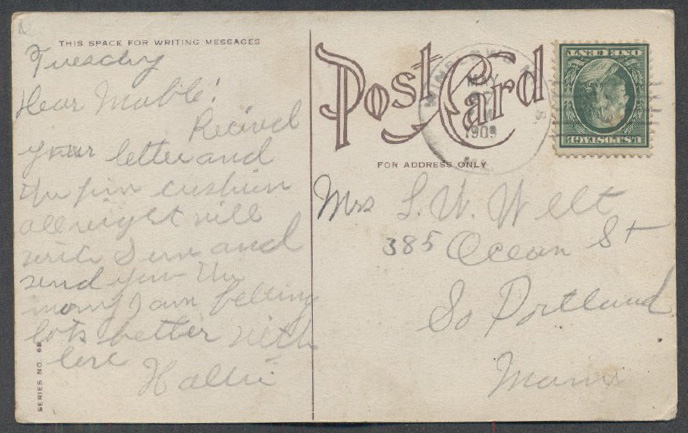 THIS SPACE FOR WRITING MESSAGES
Tuesday
Dear Mable!
Recived
your letter and
the pin cushion
allright will
write Sun and
send you the
mony I am felling
lots better with
love
Hallie
SERIES NO.
Post Card
FOR ADDRESS ONLY
MAY
1909
ONE CENT
U.S. POSTAGE
Mrs S. W. Welt
385 Ocean St
So Portland
Maine